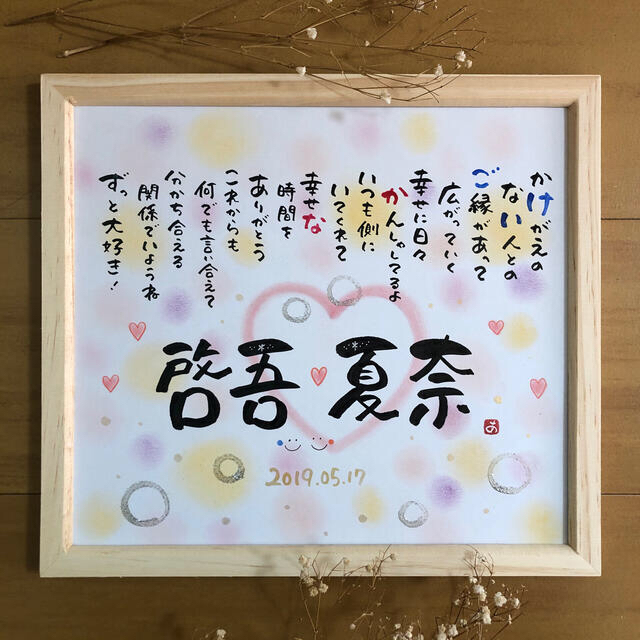 かけがえの
ない人との
ご縁があって
広がっていく
幸せに日々
かんしゃしてるよ
いつも側に
いてくれて
幸せな
時間を
ありがとう
これからも
何でも言い合えて
分かち合える
関係でいようね
ずっと大好き!
啓吾 夏奈
あ
2019.05.17